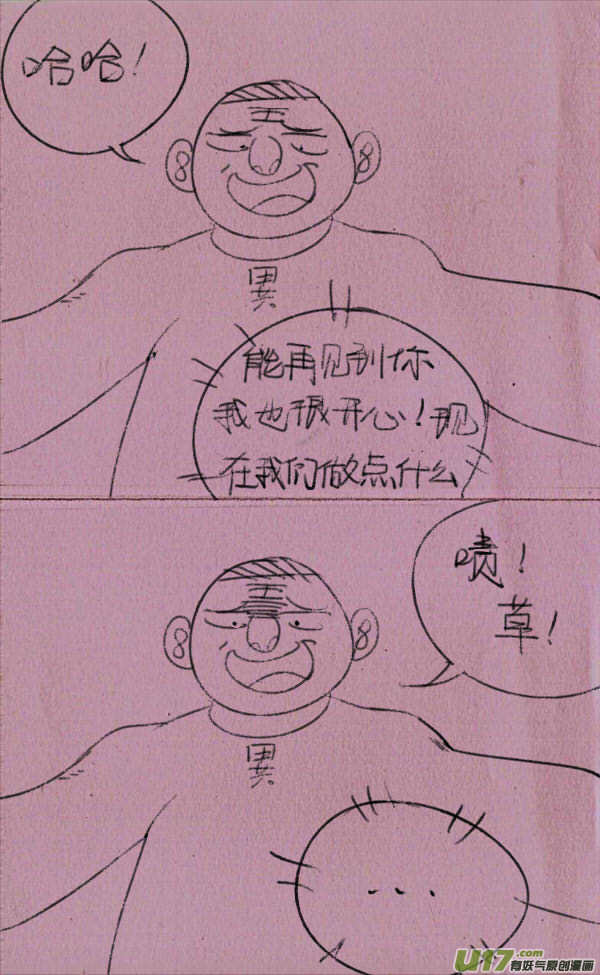 哈哈!
五
異
能再见到你
我也很开心!现
在我们做点什么
啧!
草!
五
異
...
U17.com
有妖气原创漫画